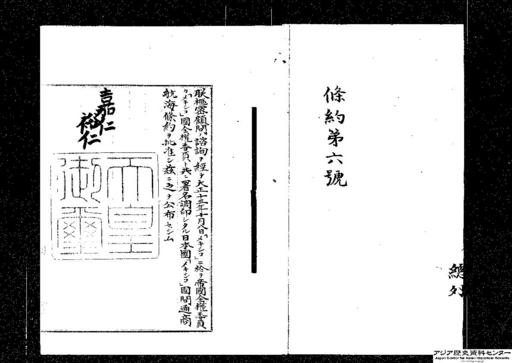 條約第六號
朕樞密顧問ノ諮詢ヲ經テ大正十三年十月八日「メキシコ」ニ於テ帝國全權委員
カ「メキシコ」國全權委員ト共ニ署名調印シタル日本國「メキシコ」國間通商
航海條約ヲ批准シ茲ニ之ヲ公布セシム
嘉仁
裕仁
天皇
御璽
アジア歴史資料センター
Japan Center for Asian Historical Records